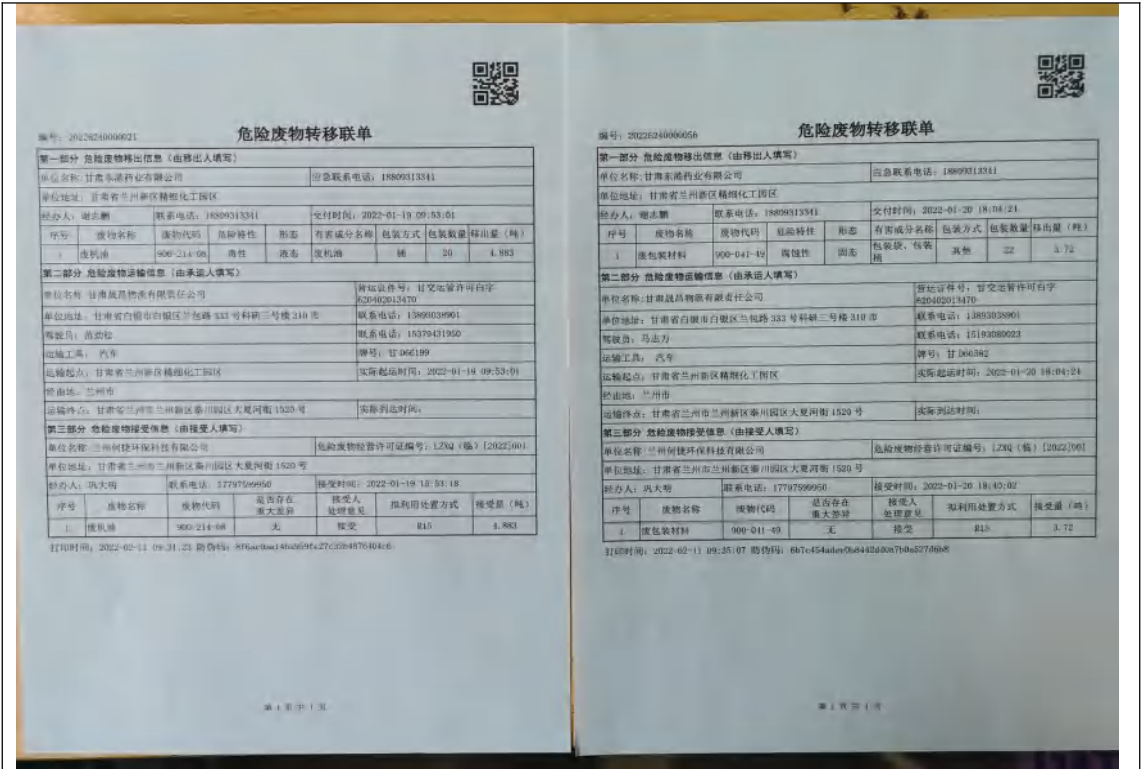 编号: 20226240000021
危险废物转移联单
第一部分 危险废物移出信息（由移出人填写）
单位名称:甘肃东港药业有限公司 应急联系电话: 18809313341
单位地址: 甘肃省兰州新区精细化工园区
经办人: 谢志鹏 联系电话: 18809313341 交付时间: 2022-01-19 09:53:01
序号 废物名称 废物代码 危险特性 形态 有害成分名称 包装方式 包装数量 移出量（吨）
1 废机油 900-214-08 毒性 液态 废机油 桶 20 4.883
第二部分 危险废物运输信息（由承运人填写）
单位名称:甘肃晟昌物流有限责任公司 营运证件号: 甘交运管许可白字620402013470
单位地址: 甘肃省白银市白银区兰包路 333 号科研三号楼 310 市 联系电话: 13893038901
驾驶员: 范劲松 联系电话: 15379431950
运输工具: 汽车 牌号: 甘 D66199
运输起点: 甘肃省兰州新区精细化工园区 实际起运时间: 2022-01-19 09:53:01
经由地: 兰州市
运输终点: 甘肃省兰州市兰州新区秦川园区大夏河街 1520 号 实际到达时间:
第三部分 危险废物接受信息（由接受人填写）
单位名称:兰州何捷环保科技有限公司 危险废物经营许可证编号: LZXQ（临）[2022]001
单位地址: 甘肃省兰州市兰州新区秦川园区大夏河街 1520 号
经办人: 巩大明 联系电话: 17797599950 接受时间: 2022-01-19 15:53:18
序号 废物名称 废物代码 是否存在重大差异 接受人处理意见 拟利用处置方式 接受量（吨）
1 废机油 900-214-08 无 接受 R15 4.883
打印时间: 2022-02-11 09:31:23 防伪码:
第 1 页 共 1 页
编号: 20226240000056
危险废物转移联单
第一部分 危险废物移出信息（由移出人填写）
单位名称:甘肃东港药业有限公司 应急联系电话: 18809313341
单位地址: 甘肃省兰州新区精细化工园区
经办人: 谢志鹏 联系电话: 18809313341 交付时间: 2022-01-20 18:04:24
序号 废物名称 废物代码 危险特性 形态 有害成分名称 包装方式 包装数量 移出量（吨）
1 废包装材料 900-041-49 腐蚀性 固态 包装袋、包装桶 其他 22 3.72
第二部分 危险废物运输信息（由承运人填写）
单位名称:甘肃晟昌物流有限责任公司 营运证件号: 甘交运管许可白字620402013470
单位地址: 甘肃省白银市白银区兰包路 333 号科研三号楼 310 市 联系电话: 13893038901
驾驶员: 马志力 联系电话: 15193080023
运输工具: 汽车 牌号: 甘 D66382
运输起点: 甘肃省兰州新区精细化工园区 实际起运时间: 2022-01-20 18:04:24
经由地: 兰州市
运输终点: 甘肃省兰州市兰州新区秦川园区大夏河街 1520 号 实际到达时间:
第三部分 危险废物接受信息（由接受人填写）
单位名称:兰州何捷环保科技有限公司 危险废物经营许可证编号: LZXQ（临）[2022]001
单位地址: 甘肃省兰州市兰州新区秦川园区大夏河街 1520 号
经办人: 巩大明 联系电话: 17797599950 接受时间: 2022-01-20 18:40:02
序号 废物名称 废物代码 是否存在重大差异 接受人处理意见 拟利用处置方式 接受量（吨）
1 废包装材料 900-041-49 无 接受 R15 3.72
打印时间: 2022-02-11 09:35:07 防伪码:
第 1 页 共 1 页